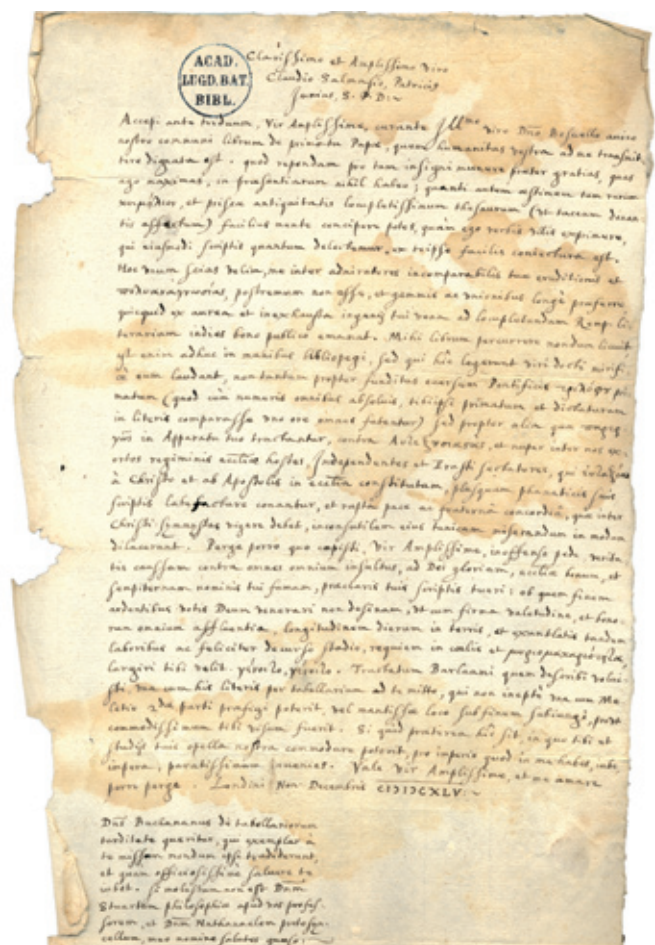 ACAD.
LUGD. BAT.
BIBL.
Clarissimo et Amplissimo Viro
Claudio Salmasio, Patricius
Junius, S. P. D:~
Accepi ante triduum, Vir Amplissime, curante Ill^mo viro Dno Bosuello amico
nostro communi librum de primatu Papæ, quem humanitas vestra ad me transmit-
tere dignata est. quod rependam pro tam insigni munere præter gratias, quas
ago maximas, in præsentiarum nihil habeo; quanti autem æstimem tam rarum
et priscæ antiquitatis locupletissimum thesaurum (ut taceam donan-
tis affectum) facilius mente concipere potes, quàm ego verbis vilis exprimere,
qui eiusmodi scriptis quantum delecter, ex teipso facilis coniectura est.
Hoc unum scias velim, me inter admiratores incomparabilis tuæ eruditionis et
postremum non esse, et gemmis ac unionibus longè præferre
quicquid ex aurea et inexhausta ingenij tui vena ad locupletandam Remp. li-
terariam indies bono publico emanat. Mihi librum percurrere nondum licuit
est enim adhuc in manibus bibliopegi, sed qui hic legerunt viri docti mirifi-
cè eum laudant, non tantum propter funditus eversum Pontificis pri-
matum (quod cùm numeris omnibus absolvis, tibi ipsi primatum et dictaturam
in literis comparasse uno ore omnes fatentur) sed propter alia quæ
in Apparatu tuo tractantur, contra et nuper inter nos ex-
ortos regiminis eccliæ hostes, Independentes et Erasti sectatores, qui
à Christo et ab Apostolis in ecclia constitutam, plusquam phanaticis suis
scriptis labefactare conantur, et rupta pace ac fraterna concordia, quæ inter
Christi vigere debet, inconsutilem eius tunicam miserandum in modum
dilacerant. Perge porro quo cœpisti, Vir Amplissime, inoffenso pede, verita-
tis caussam contra omnes omnium insultus, ad Dei gloriam, eccliæ bonum, et
sempiternam nominis tui famam, præclaris tuis scriptis tueri: ob quem finem
ardentibus votis Deum venerari non desinam, ut cum firma valetudine, et bono-
rum omnium affluentia, longitudinem dierum in terris, et exantlatis tandem
laboribus ac feliciter decurso stadio, requiem in cœlis et
largiri tibi velit. γένοιτο, γένοιτο. Tractatum Barlaami quem describi volui-
sti, una cum his literis per tabellarium ad te mitto, qui non ineptè una cum Me-
letio 2^dæ parti præfigi poterit, vel mantissæ loco sub finem subiungi, prout
commodissimum tibi visum fuerit. Si quid præterea hic sit, in quo tibi et
studijs tuis opella nostra commodare poterit, pro imperio quod in me habes, iube,
impera, paratissimum invenies. Vale Vir Amplissime, et me amare
porro perge. Londini Non. Decembris CIƆIƆCXLV:~
Dns Buchananus de tabellariorum
tarditate queritur, qui exemplar à
te missum nondum ipsi tradiderunt,
et quam officiosissimè salvere te
iubet. Si molestum non est Dnm
Stuartum philosophiæ apud vos profes-
sorem, et Dnm Nathanaelem protosyn-
cellum, meo nomine salutes quæso:~